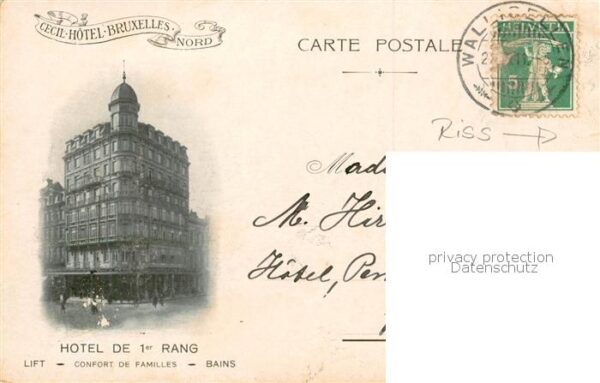 CECIL-HÔTEL-BRUXELLES
NORD
CARTE POSTALE
HELVETIA
5
Riss →
Mada
M. Hir
Hôtel, Pen
privacy protection
Datenschutz
HOTEL DE 1er RANG
LIFT - CONFORT DE FAMILLES - BAINS